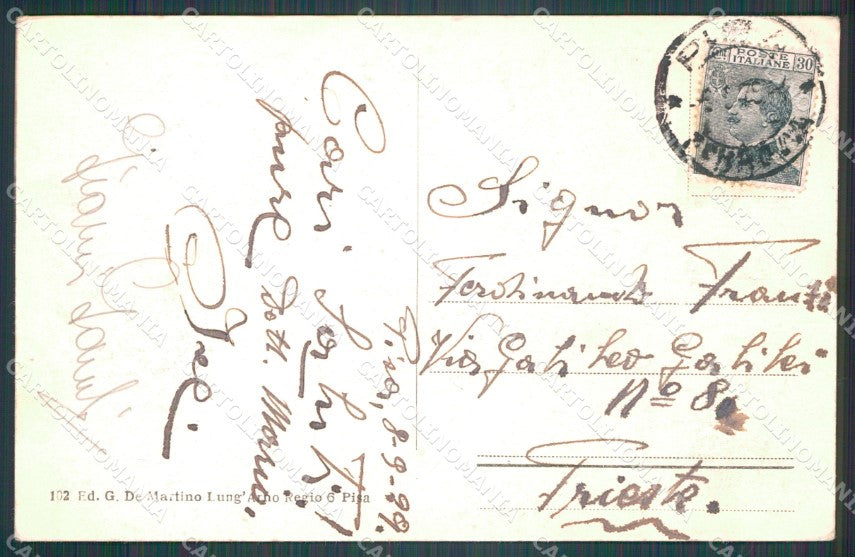 Pisa, 8-9-29.
Cari Saluti
pure Dott. Mario.
Signor
Ferdinando Franzè
Via Galileo Galilei
Nº 8
Trieste.
POSTE
ITALIANE
30
PISA
FERROVIA
162 Ed. G. De Martino Lung'Arno Regio 6 Pisa
CARTOLINOMANIA